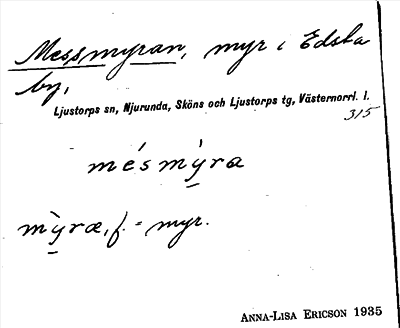 Messmyran, myr i Edsta
by,
Ljustorps sn, Njurunda, Sköns och Ljustorps tg, Västernorrl. l.
315
mésmỳra
mỳræ, f. = myr.
ANNA-LISA ERICSON 1935